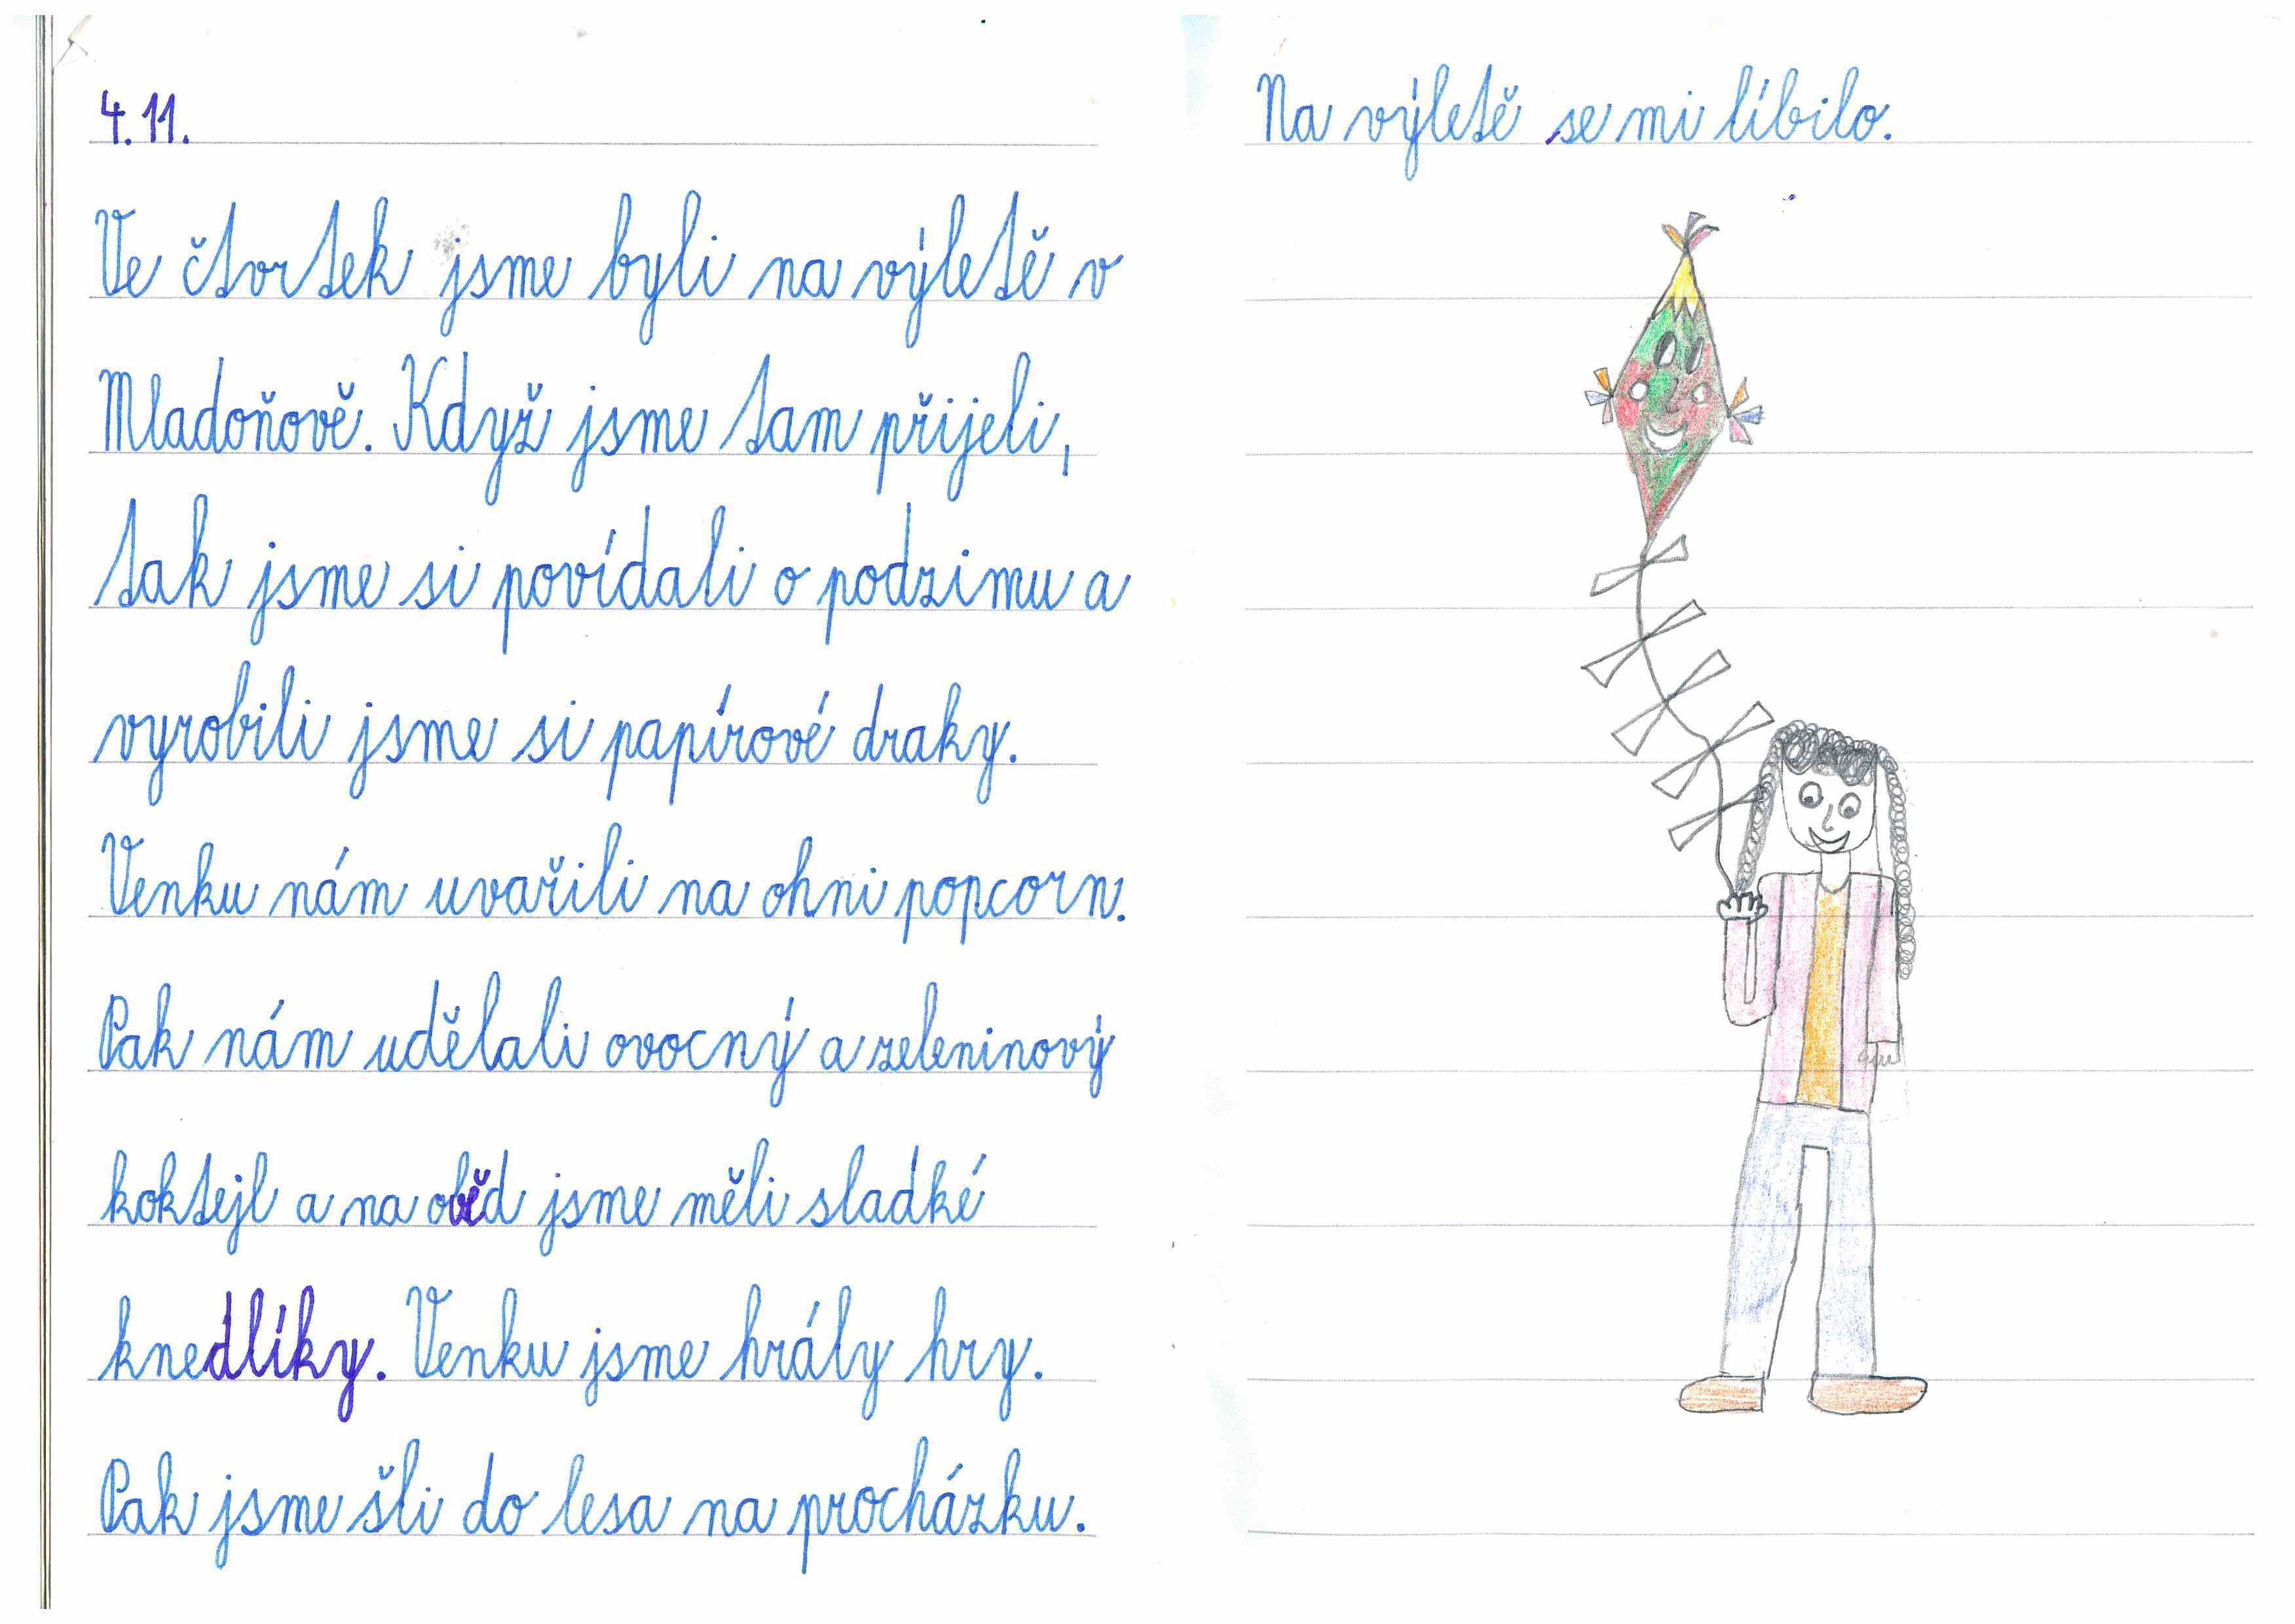 4. 11.
Ve čtvrtek jsme byli na výletě v
Mladoňově. Když jsme tam přijeli,
tak jsme si povídali o podzimu a
vyrobili jsme si papírové draky.
Venku nám uvařili na ohni popcorn.
Pak nám udělali ovocný a zeleninový
koktejl a na oběd jsme měli sladké
knedlíky. Venku jsme hrály hry.
Pak jsme šli do lesa na procházku.
Na výletě se mi líbilo.